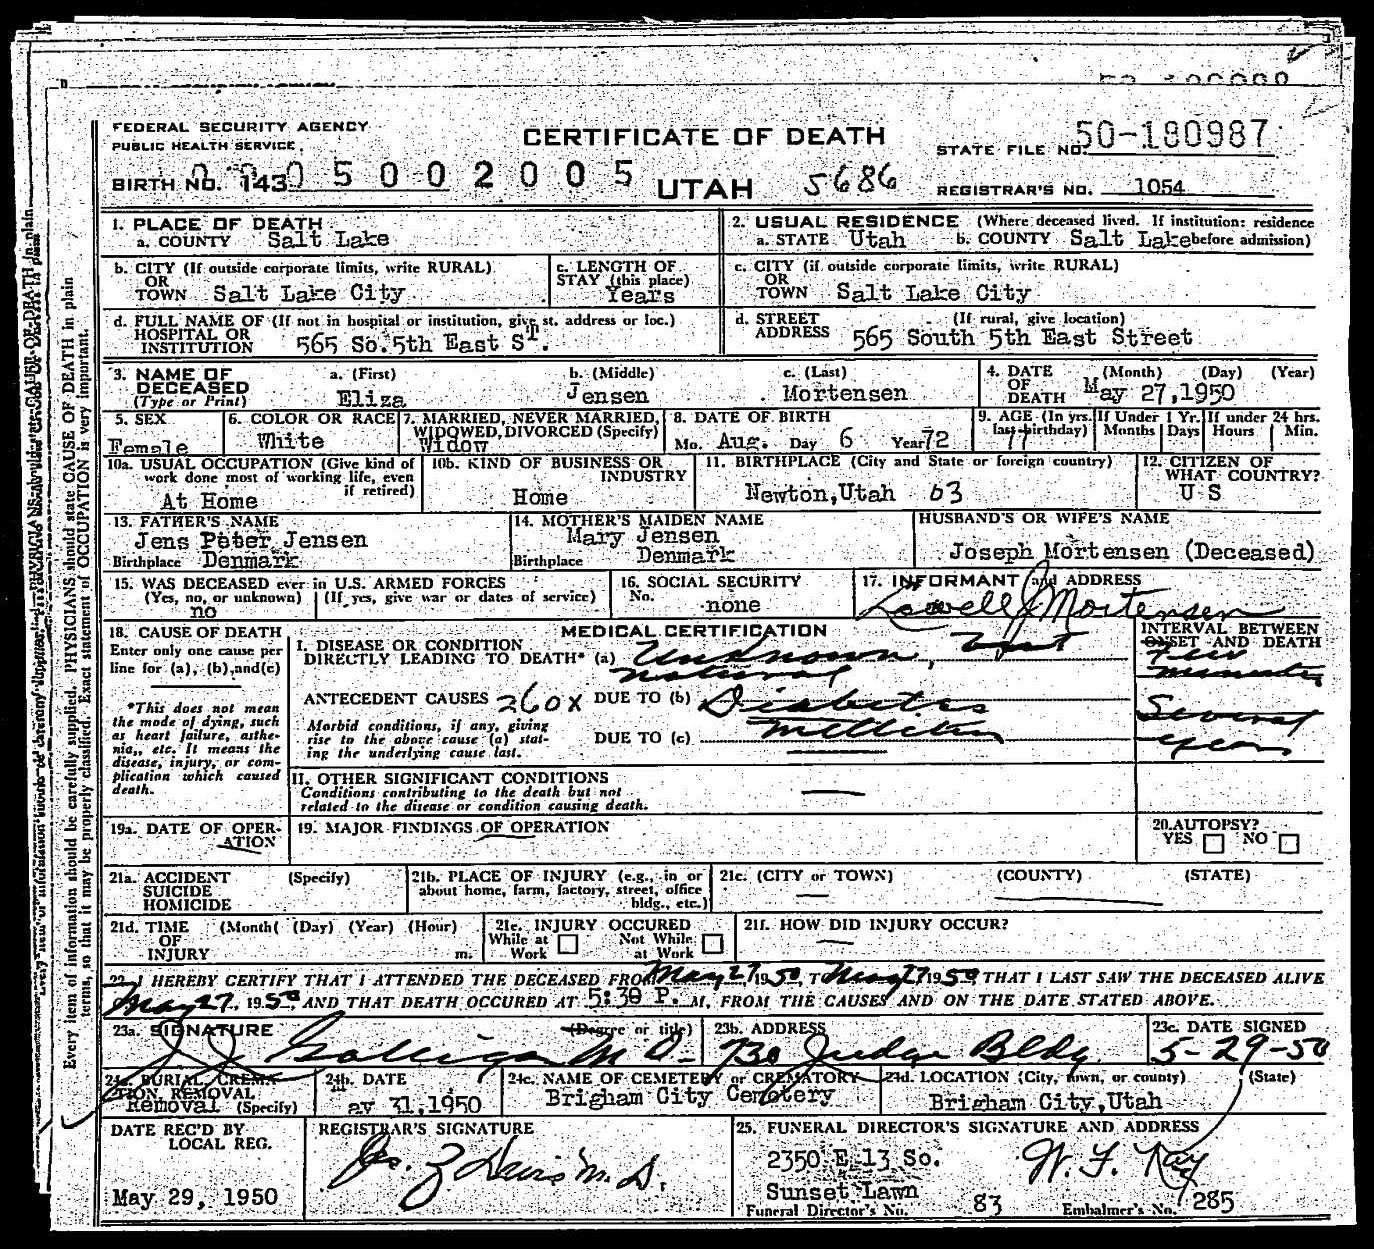 FEDERAL SECURITY AGENCY
PUBLIC HEALTH SERVICE
CERTIFICATE OF DEATH
STATE FILE NO. 50-180987
BIRTH NO. 143 0 5 0 0 2 0 0 5
UTAH 5686
REGISTRAR'S NO. 1054
1. PLACE OF DEATH
a. COUNTY Salt Lake
2. USUAL RESIDENCE (Where deceased lived. If institution: residence
a. STATE Utah b. COUNTY Salt Lake before admission)
b. CITY (If outside corporate limits, write RURAL)
OR
TOWN Salt Lake City
c. LENGTH OF
STAY (this place)
Years
c. CITY (if outside corporate limits, write RURAL)
OR
TOWN Salt Lake City
d. FULL NAME OF (If not in hospital or institution, give st. address or loc.)
HOSPITAL OR
INSTITUTION 565 So. 5th East ST.
d. STREET (If rural, give location)
ADDRESS 565 South 5th East Street
3. NAME OF
DECEASED
(Type or Print)
a. (First)
Eliza
b. (Middle)
Jensen
c. (Last)
Mortensen
4. DATE (Month) (Day) (Year)
OF
DEATH May 27,1950
5. SEX
Female
6. COLOR OR RACE
White
7. MARRIED, NEVER MARRIED,
WIDOWED, DIVORCED (Specify)
Widow
8. DATE OF BIRTH
Mo. Aug. Day 6 Year 72
9. AGE (In yrs.
last birthday)
77
If Under 1 Yr.
Months Days
If under 24 hrs.
Hours Min.
10a. USUAL OCCUPATION (Give kind of
work done most of working life, even
if retired)
At Home
10b. KIND OF BUSINESS OR
INDUSTRY
Home
11. BIRTHPLACE (City and State or foreign country)
Newton,Utah 03
12. CITIZEN OF
WHAT COUNTRY?
U S
13. FATHER'S NAME
Jens Peter Jensen
Birthplace Denmark
14. MOTHER'S MAIDEN NAME
Mary Jensen
Birthplace Denmark
HUSBAND'S OR WIFE'S NAME
Joseph Mortensen (Deceased)
15. WAS DECEASED ever in U.S. ARMED FORCES
(Yes, no, or unknown) (If yes, give war or dates of service)
no
16. SOCIAL SECURITY
No.
none
17. INFORMANT and ADDRESS
Lowell J Mortensen
18. CAUSE OF DEATH
Enter only one cause per
line for (a), (b), and (c)
*This does not mean
the mode of dying, such
as heart failure, asthe-
nia,, etc. It means the
disease, injury, or com-
plication which caused
death.
MEDICAL CERTIFICATION
I. DISEASE OR CONDITION
DIRECTLY LEADING TO DEATH* (a) Unknown, but
natural
ANTECEDENT CAUSES 260X DUE TO (b) Diabetes
Mellitus
Morbid conditions, if any, giving
rise to the above cause (a) stat-
ing the underlying cause last.
DUE TO (c)
INTERVAL BETWEEN
ONSET AND DEATH
Few
minutes
Several
years
II. OTHER SIGNIFICANT CONDITIONS
Conditions contributing to the death but not
related to the disease or condition causing death.
19a. DATE OF OPER-
ATION
19. MAJOR FINDINGS OF OPERATION
20. AUTOPSY?
YES NO
21a. ACCIDENT (Specify)
SUICIDE
HOMICIDE
21b. PLACE OF INJURY (e.g., in or
about home, farm, factory, street, office
bldg., etc.)
21c. (CITY or TOWN) (COUNTY) (STATE)
21d. TIME (Month( (Day) (Year) (Hour)
OF
INJURY m.
21e. INJURY OCCURED
While at Work Not While at Work
21f. HOW DID INJURY OCCUR?
22. I HEREBY CERTIFY THAT I ATTENDED THE DECEASED FROM May 27 1950, TO May 27 1950 THAT I LAST SAW THE DECEASED ALIVE
May 27. 1950 AND THAT DEATH OCCURED AT 5:30 P. M, FROM THE CAUSES AND ON THE DATE STATED ABOVE.
23a. SIGNATURE (Degree or title)
M D
23b. ADDRESS
730 Judge Bldg
23c. DATE SIGNED
5-29-50
24a. BURIAL, CREMA-
TION, REMOVAL
Removal (Specify)
24b. DATE
ay 31,1950
24c. NAME OF CEMETERY or CREMATORY
Brigham City Cemetery
24d. LOCATION (City, town, or county) (State)
Brigham City,Utah
DATE REC'D BY
LOCAL REG.
May 29, 1950
REGISTRAR'S SIGNATURE
Davis M.D.
25. FUNERAL DIRECTOR'S SIGNATURE AND ADDRESS
2350 E 13 So.
Sunset Lawn
W. F. Kay
Funeral Director's No. 83 Embalmer's No. 285
Every item of information should be carefully supplied. PHYSICIANS should state CAUSE OF DEATH in plain
terms, so that it may be properly classified. Exact statement of OCCUPATION is very important.